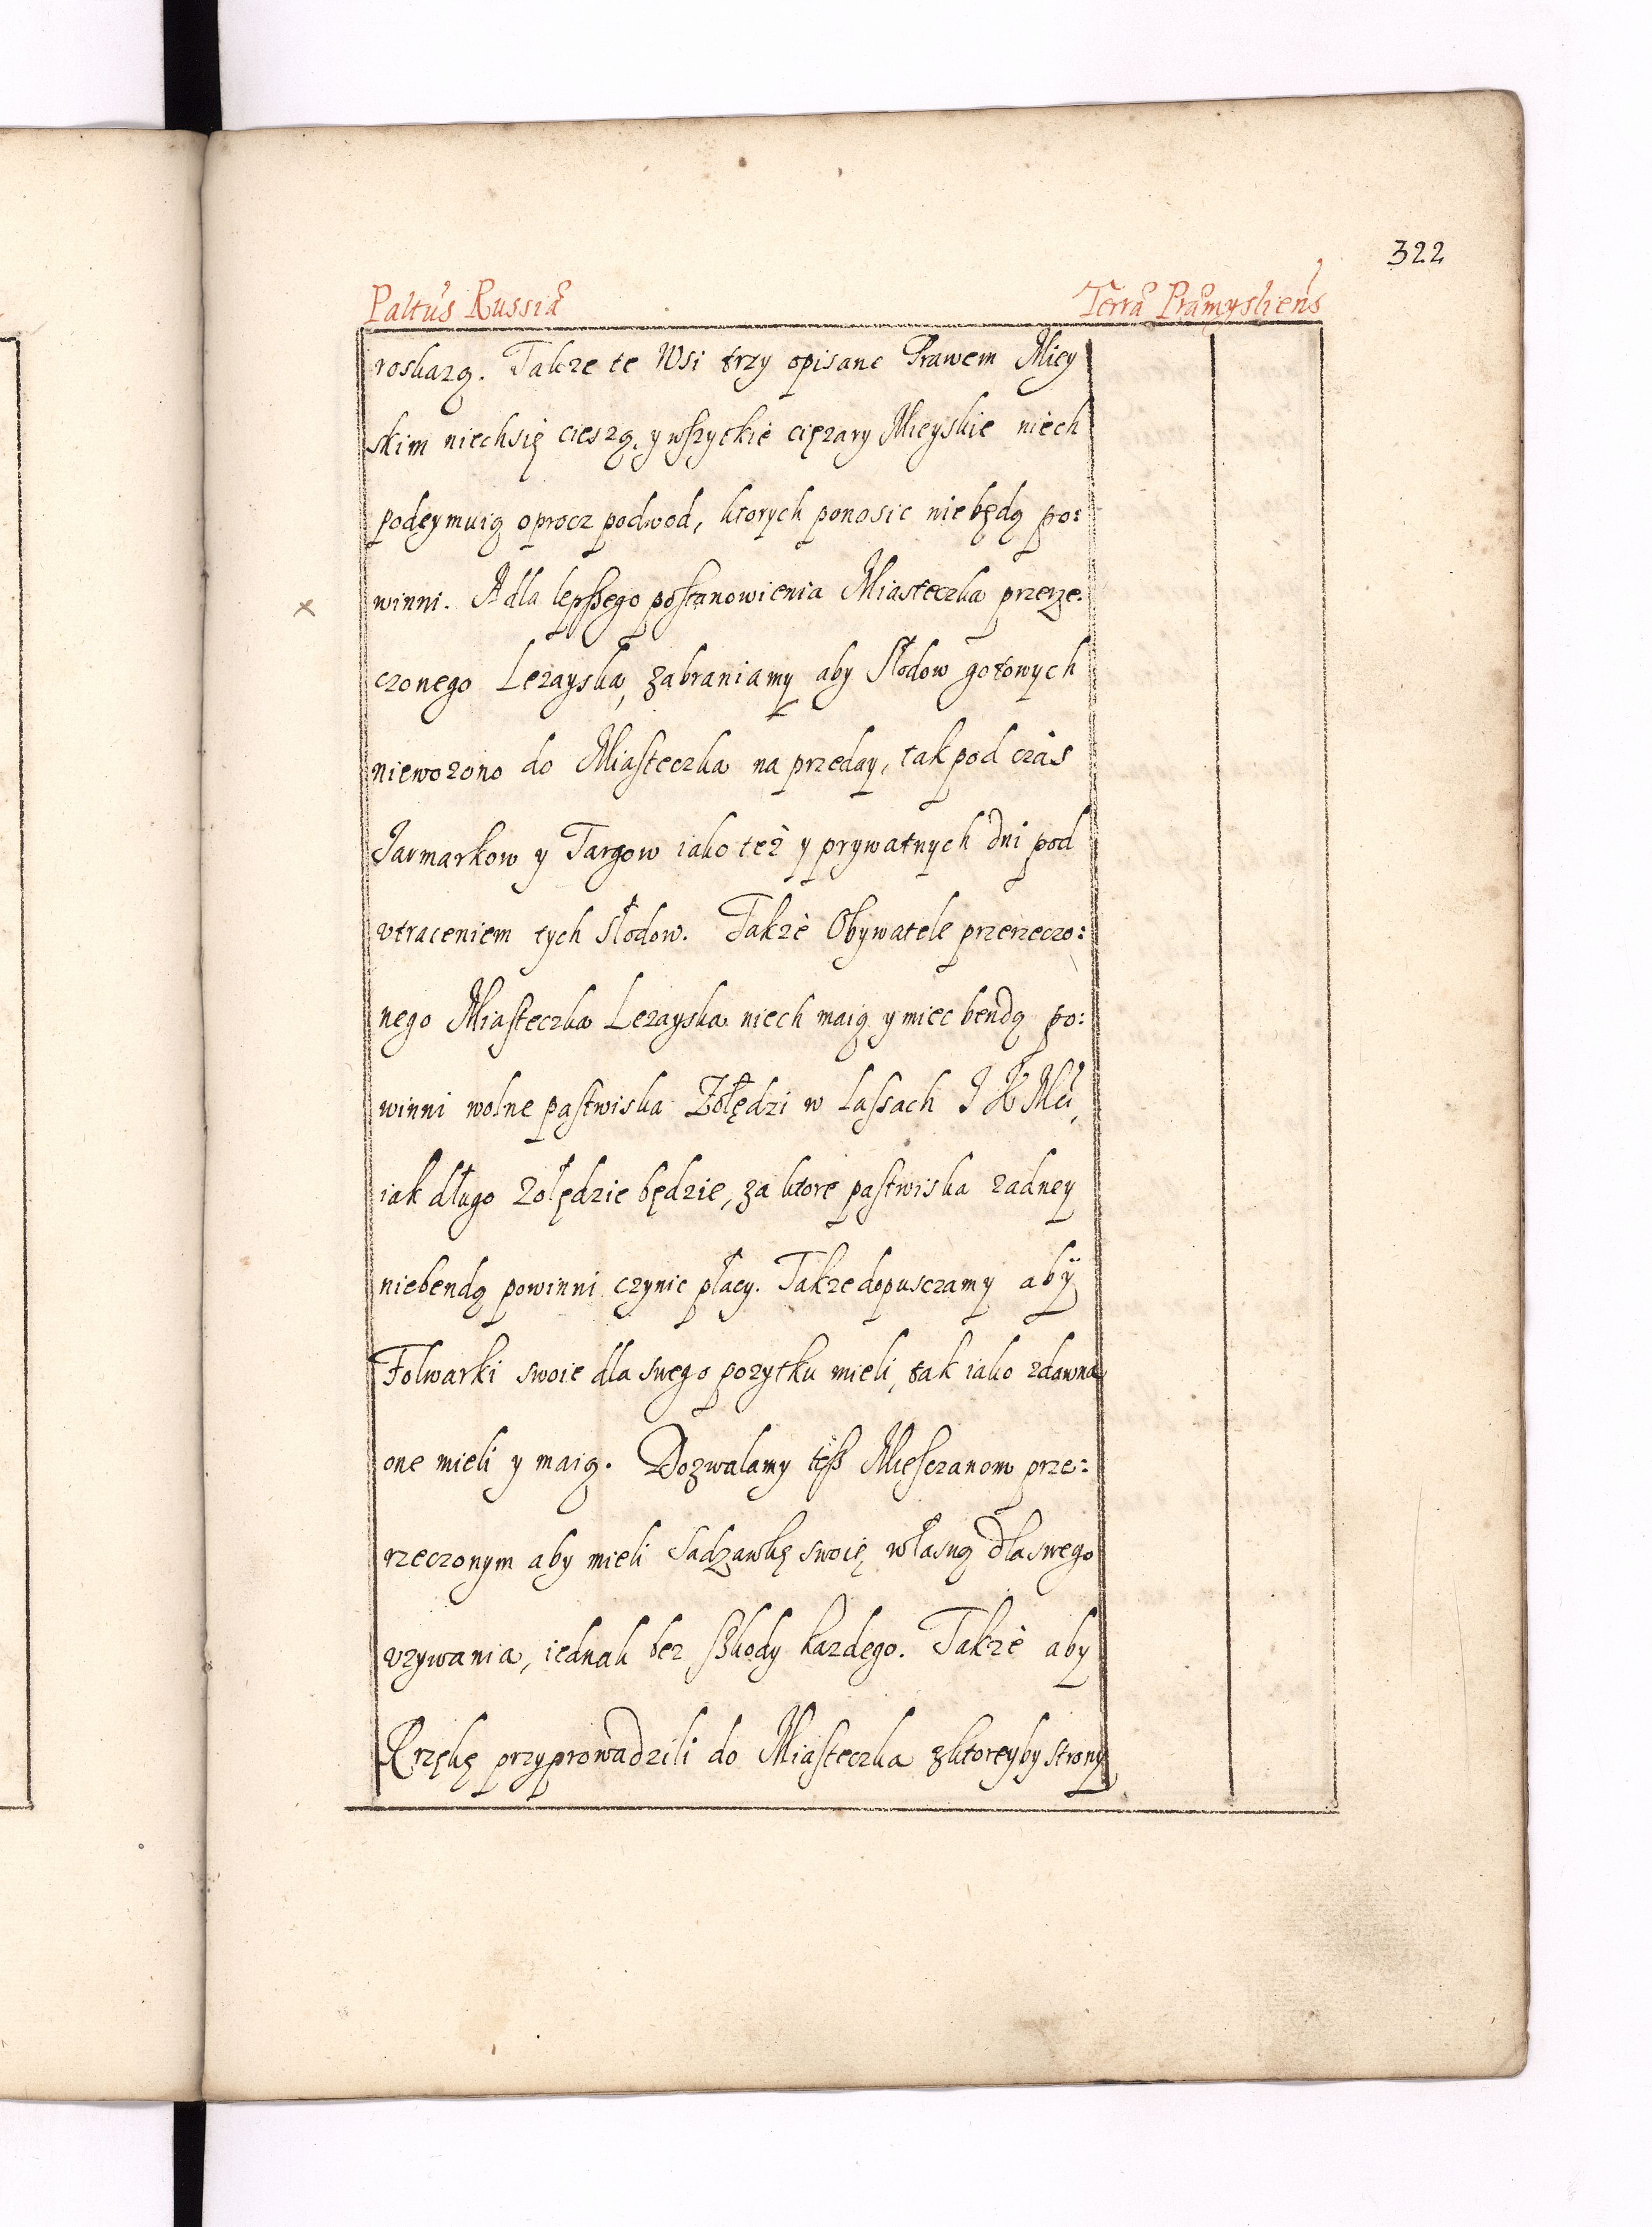 322
Paltus Russiæ Terræ Præmysliens
roskazą. Takze te Wsi trzy opisane Prawem Miey
skim niechsię cieszą, y wszytkie cięzary Mieyskie niech
podeymuią oprocz podwod, ktorych ponosic niebędą po:
winni. A dla lepszego postanowienia Miasteczka przerze:
czonego Lezayska, zabraniamy aby Słodow gotowych
niewozono do Miasteczka na przeday, tak pod czas
Jarmarkow y Targow iako też y prywatnych dni pod
vtraceniem tych słodow. Takze Obywatele przerzeczo:
nego Miasteczka Lezayska niech maią y miec bendą po:
winni wolne pastwiska Zołędzi w Lassach J K Mci,
iak długo zołędzie będzie, za ktore pastwiska zadney
niebendą powinni czynic płacy. Takze dopusczamy abÿ
Folwarki swoie dla swego pozytku mieli, tak iako zdawna
one mieli y maią. Dozwalamy tesz Miesczanom prze:
rzeczonym aby mieli Sadzawkę swoię własną dla swego
vzywania, iednak bez szkody kazdego. Takze aby
Rzękę przyprowadzili do Miasteczka zktoreyby strony